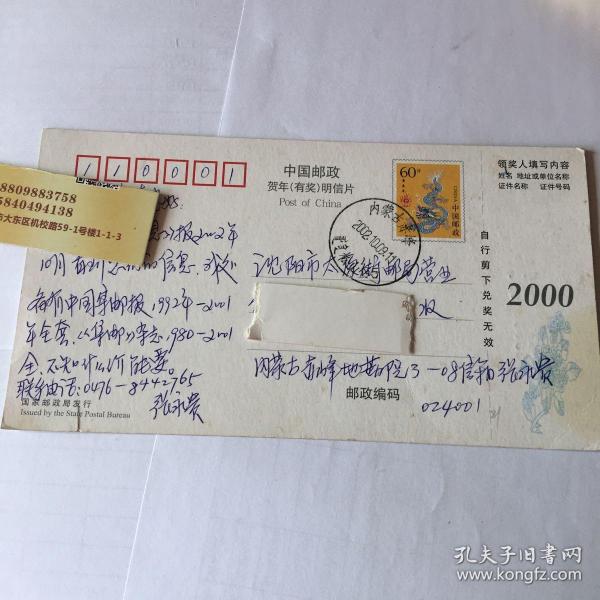 110001
8809883758
5840494138
大东区机校路59-1号楼1-1-3
中国邮政
贺年(有奖)明信片
Post of China
60分
CHINA
中国邮政
内蒙古
2002.10.09.11
报2002年
10月
的信息,我处
备有中国集邮报,1992年-2001
年全套,《集邮》杂志,1980-2001
全,不知什么价能要。
联系电话:0476-8442765
张永贵
国家邮政局发行
Issued by the State Postal Bureau
沈阳市太原街邮局营业
收
内蒙古赤峰地
3-08信箱张永贵
邮政编码
024001
领奖人填写内容
姓名 地址或单位名称
证件名称 证件号码
自行剪下兑奖无效
2000
孔夫子旧书网
www.kongfz.com